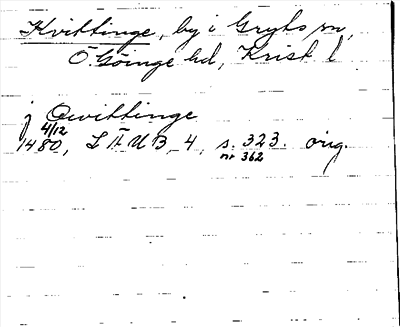 Kvittinge, by i Gryts sn,
Ö. Göinge hd, Krist l
j Qwittinge
4/12
1480, LÄUB 4, s. 323. orig.
nr 362